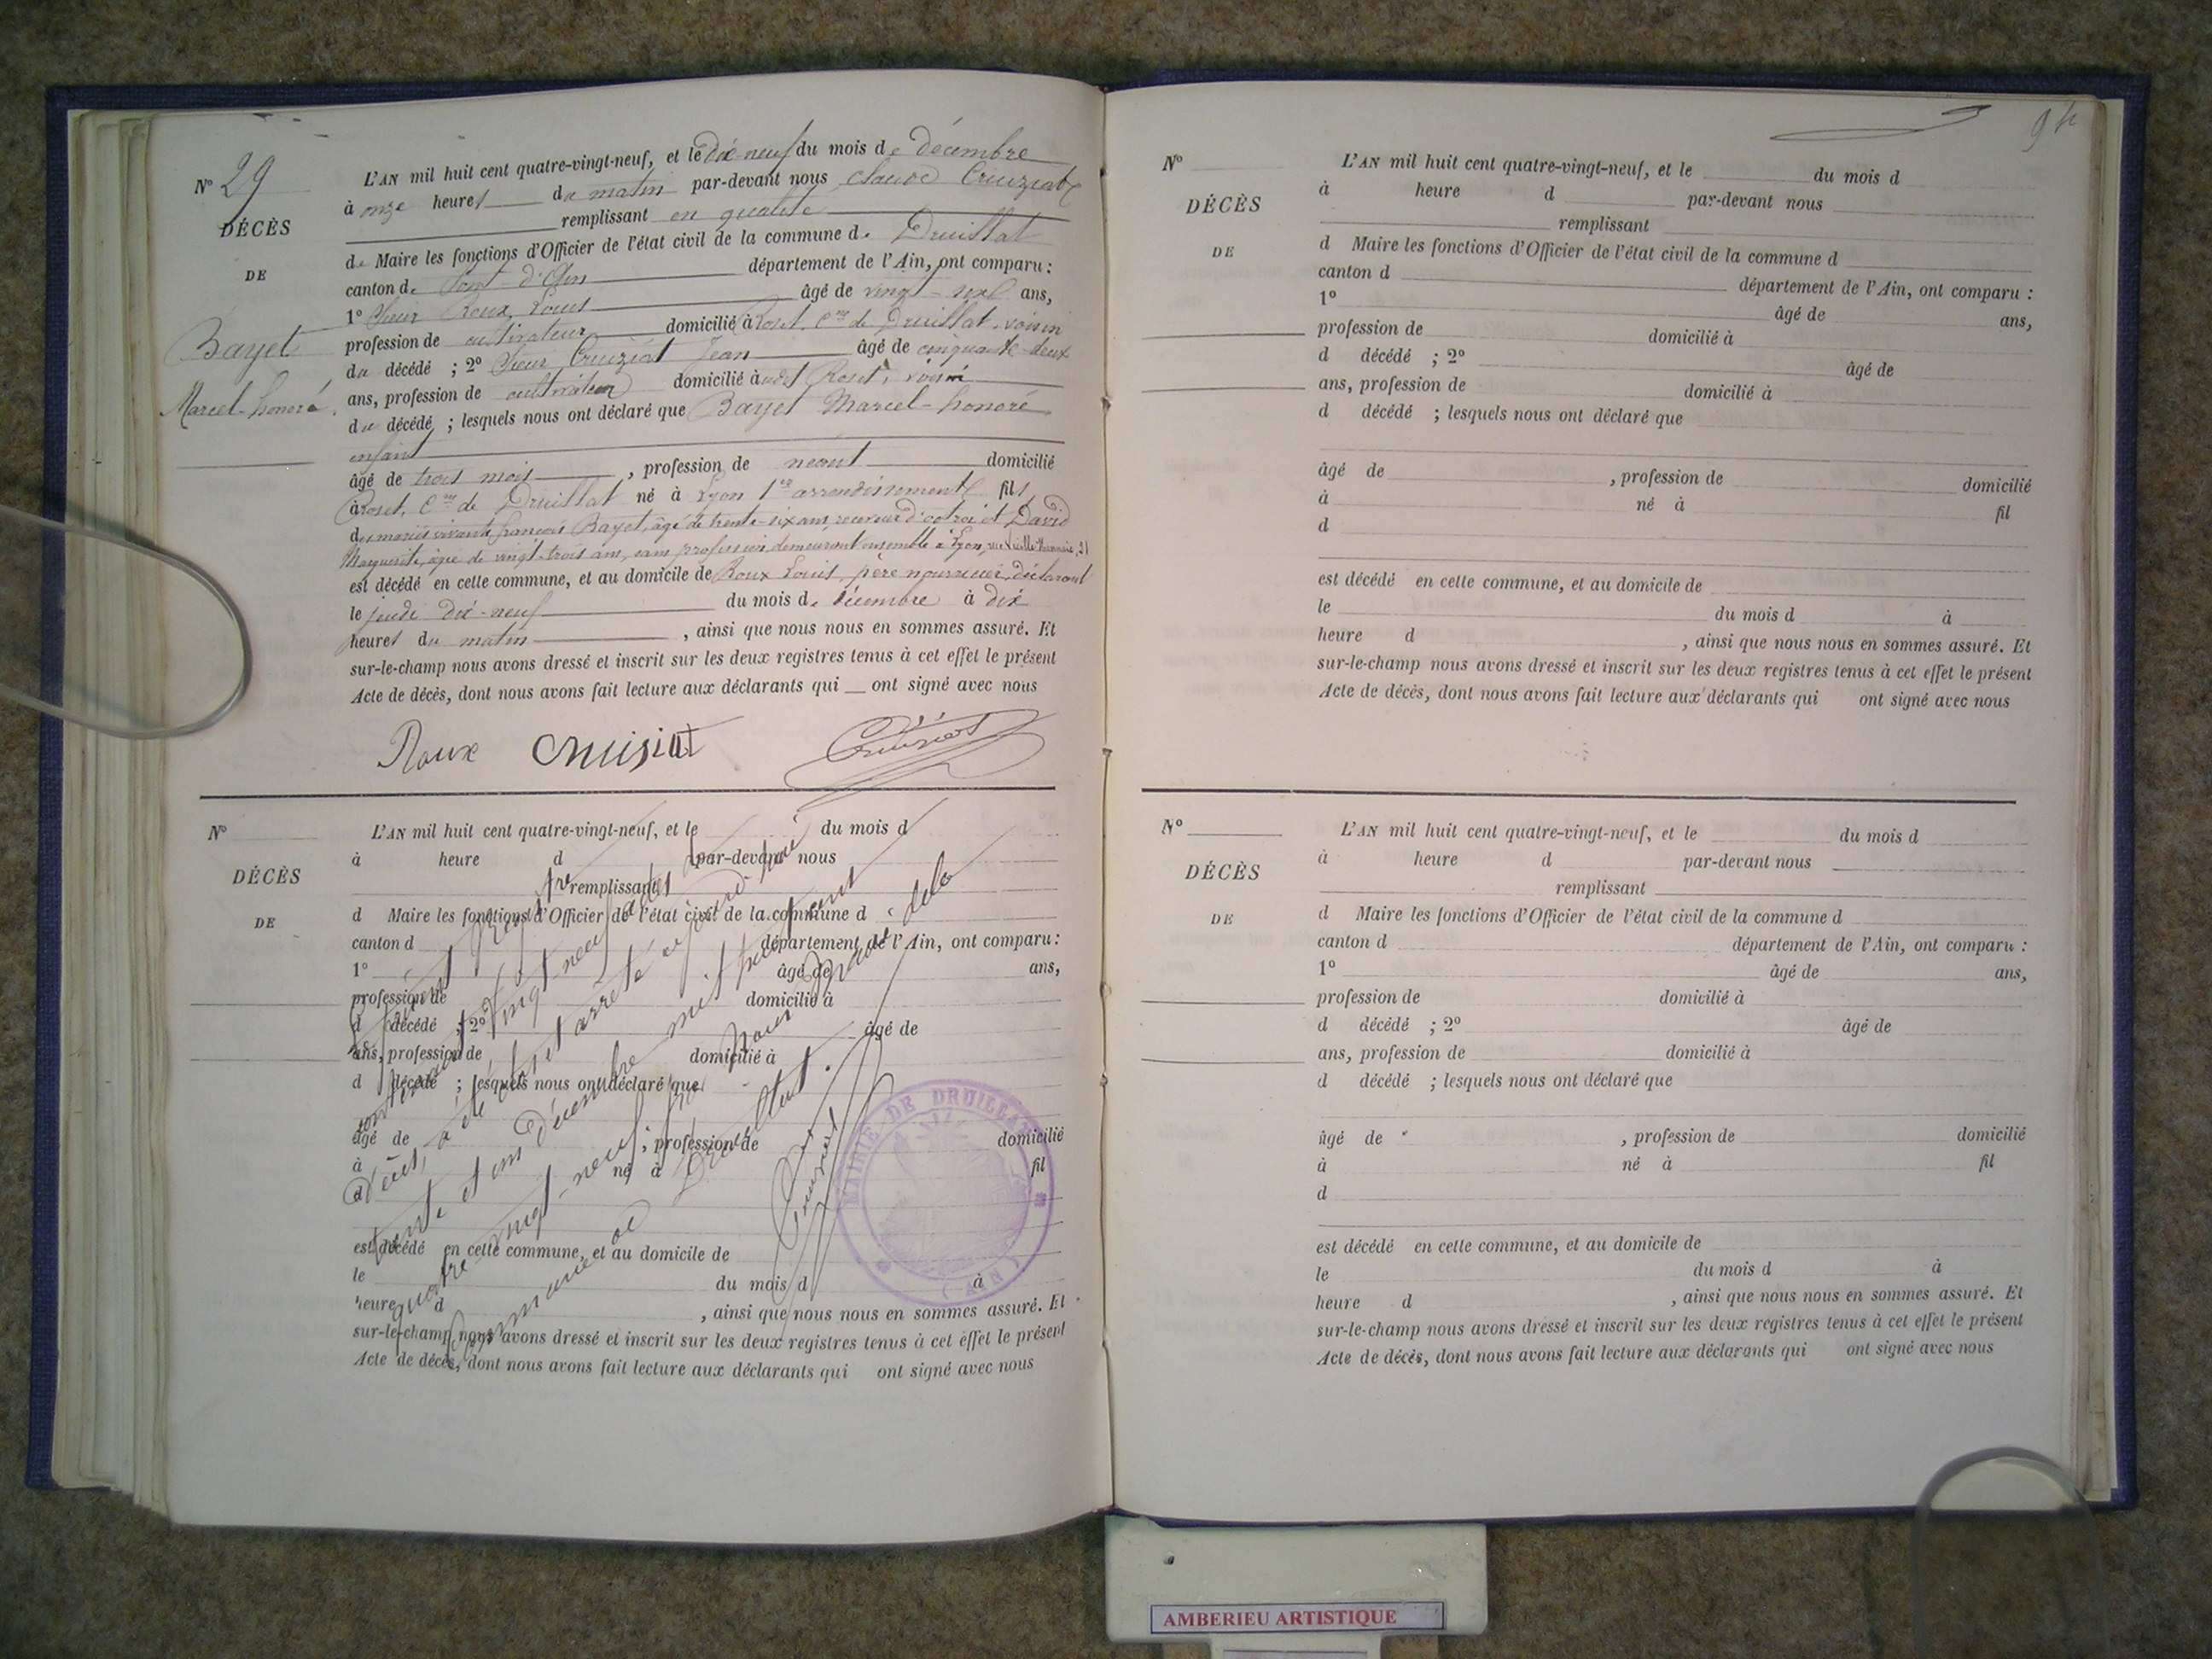 Nº 29
DÉCÈS
DE
Bayet
Marcel-honoré
L'AN mil huit cent quatre-vingt-neuf, et le dix-neuf du mois de décembre
à onze heures du matin par-devant nous Claude Cruiziat
remplissant en qualité
de Maire les fonctions d'Officier de l'état civil de la commune de Druillat
canton de Pont-d'Ain département de l'Ain, ont comparu :
1º Sieur Roux Louis âgé de vingt-sept ans,
profession de cultivateur domicilié à Roset, Cne de Druillat, voisin
du décédé ; 2º Sieur Cruiziat Jean âgé de cinquante-deux
ans, profession de cultivateur domicilié audit Roset, voisin
du décédé ; lesquels nous ont déclaré que Bayet Marcel-honoré
enfant
âgé de trois mois , profession de néant domicilié
à Roset, Cne de Druillat né à Lyon 1er arrondissement fils
des mariés vivants françois Bayet, âgé de trente-six ans, receveur d'octroi et David
Marguerite, âgée de vingt-trois ans, sans profession demeurant ensemble à Lyon, rue Vieille Monnaie, 21
est décédé en cette commune, et au domicile de Roux Louis, père nourricier, déclarant
le jeudi dix-neuf du mois de décembre à dix
heures du matin , ainsi que nous nous en sommes assuré. Et
sur-le-champ nous avons dressé et inscrit sur les deux registres tenus à cet effet le présent
Acte de décès, dont nous avons fait lecture aux déclarants qui ont signé avec nous
Roux Cruisiat Cruiziat
Nº
DÉCÈS
DE
L'AN mil huit cent quatre-vingt-neuf, et le du mois d
à heure d par-devant nous
remplissant
d Maire les fonctions d'Officier de l'état civil de la commune d
canton d département de l'Ain, ont comparu :
1º âgé de ans,
profession de domicilié à
d décédé ; 2º âgé de
ans, profession de domicilié à
d décédé ; lesquels nous ont déclaré que
âgé de , profession de domicilié
à né à fil
d
est décédé en cette commune, et au domicile de
le du mois d à
heure d , ainsi que nous nous en sommes assuré. Et
sur-le-champ nous avons dressé et inscrit sur les deux registres tenus à cet effet le présent
Acte de décès, dont nous avons fait lecture aux déclarants qui ont signé avec nous
Le présent Registre des
contenant vingt neuf actes de
décès, a été clos et arrêté aujourd'hui
trente et un décembre mil huit cent
quatre-vingt-neuf par Nous Maire de la
Commune de Druillat.
Cruiziat
MAIRIE DE DRUILLAT
(AIN)
94
Nº
DÉCÈS
DE
L'AN mil huit cent quatre-vingt-neuf, et le du mois d
à heure d par-devant nous
remplissant
d Maire les fonctions d'Officier de l'état civil de la commune d
canton d département de l'Ain, ont comparu :
1º âgé de ans,
profession de domicilié à
d décédé ; 2º âgé de
ans, profession de domicilié à
d décédé ; lesquels nous ont déclaré que
âgé de , profession de domicilié
à né à fil
d
est décédé en cette commune, et au domicile de
le du mois d à
heure d , ainsi que nous nous en sommes assuré. Et
sur-le-champ nous avons dressé et inscrit sur les deux registres tenus à cet effet le présent
Acte de décès, dont nous avons fait lecture aux déclarants qui ont signé avec nous
Nº
DÉCÈS
DE
L'AN mil huit cent quatre-vingt-neuf, et le du mois d
à heure d par-devant nous
remplissant
d Maire les fonctions d'Officier de l'état civil de la commune d
canton d département de l'Ain, ont comparu :
1º âgé de ans,
profession de domicilié à
d décédé ; 2º âgé de
ans, profession de domicilié à
d décédé ; lesquels nous ont déclaré que
âgé de , profession de domicilié
à né à fil
d
est décédé en cette commune, et au domicile de
le du mois d à
heure d , ainsi que nous nous en sommes assuré. Et
sur-le-champ nous avons dressé et inscrit sur les deux registres tenus à cet effet le présent
Acte de décès, dont nous avons fait lecture aux déclarants qui ont signé avec nous
AMBERIEU ARTISTIQUE